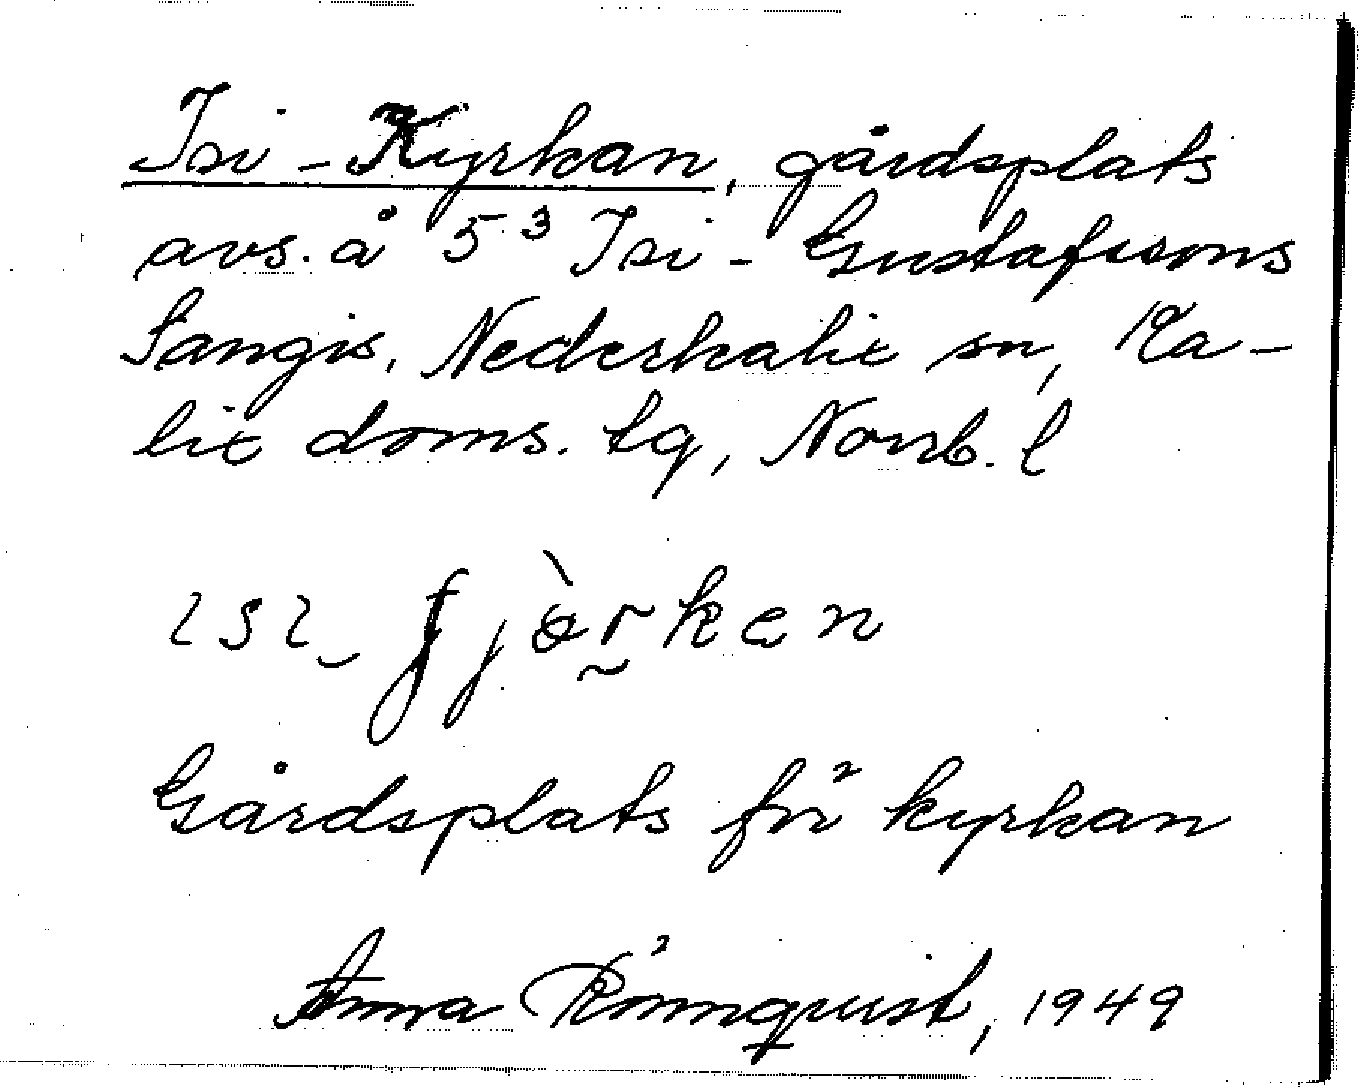 Isi-Kyrkan, gårdsplats
avs. å 5³ Isi-Gustafssons
Sangis, Nederkalix sn, Ka-
lix doms. tg, Norrb. l
Gårdsplats för kyrkan
Anna Rönnquist, 1949